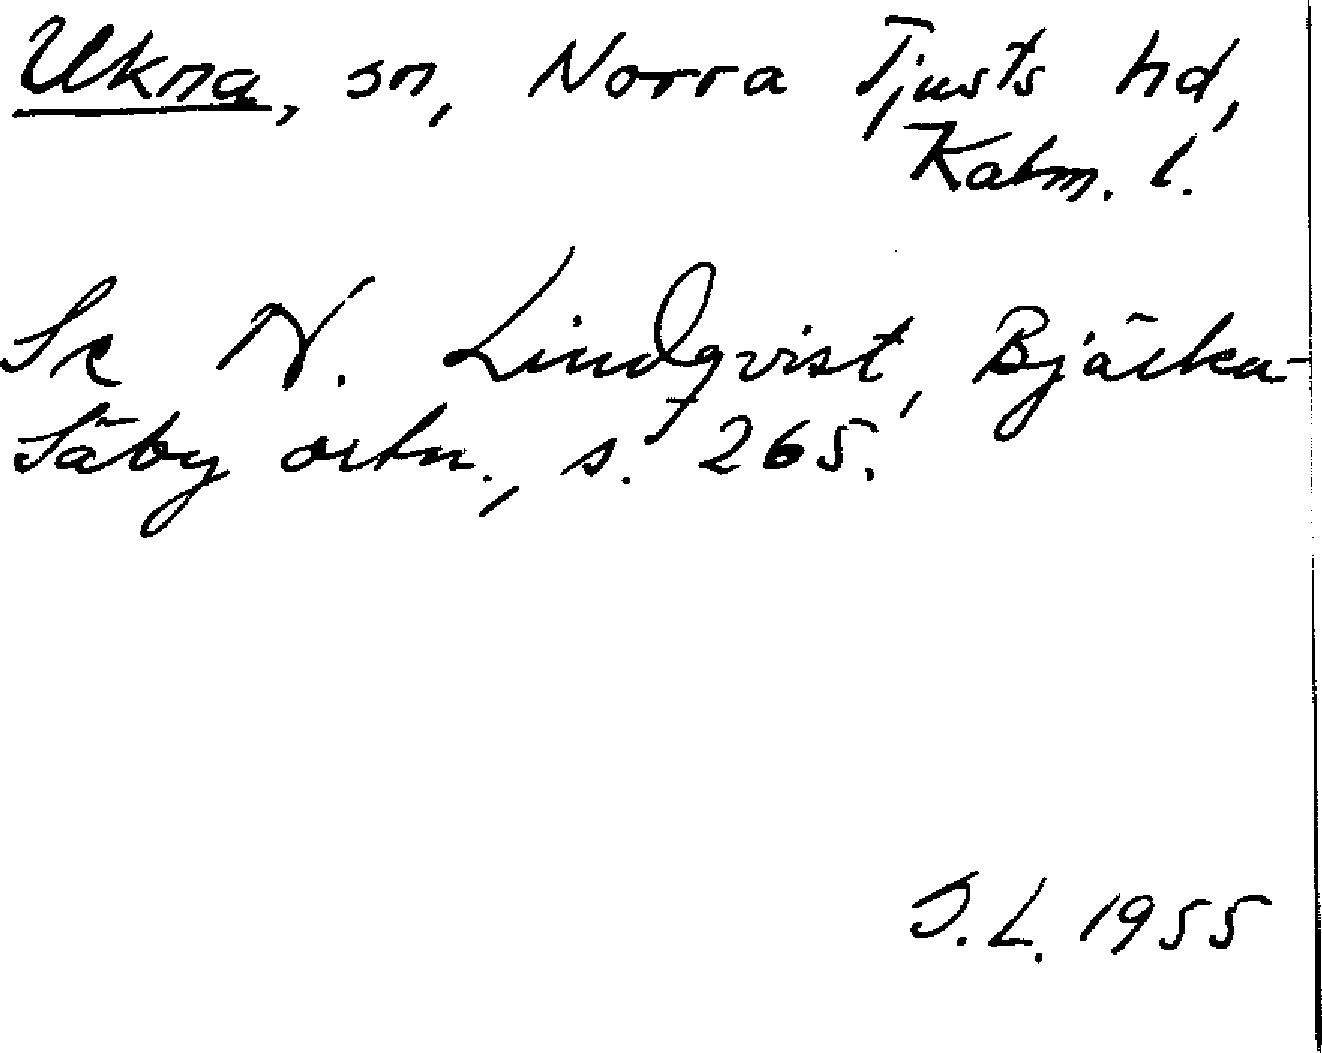 Ukna, sn, Norra Tjusts hd,
Kalm. l.
Se N. Lindqvist, Bjärka-
Säby ortn., s. 265.
J.L. 1955